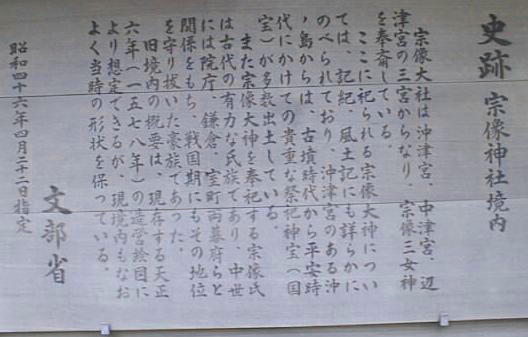 史跡 宗像神社境内
宗像大社は沖津宮、中津宮、辺
津宮の三宮からなり、宗像三女神
を奉斎している。
ここに祀られる宗像大神につい
ては、記紀、風土記にも詳らかに
のべられており、沖津宮のある沖
ノ島からは、古墳時代から平安時
代にかけての貴重な祭祀神宝(国
宝)が多数出土している。
また宗像大神を奉祀する宗像氏
は古代の有力な氏族であり、中世
には院庁、鎌倉、室町両幕府らと
関係をもち、戦国期にもその地位
を守り抜いた豪族であった。
旧境内の概要は、現存する天正
六年(一五七八年)の造営絵図に
より想定できるが、現境内もなお
よく当時の形状を保っている。
文部省
昭和四十六年四月二十二日指定